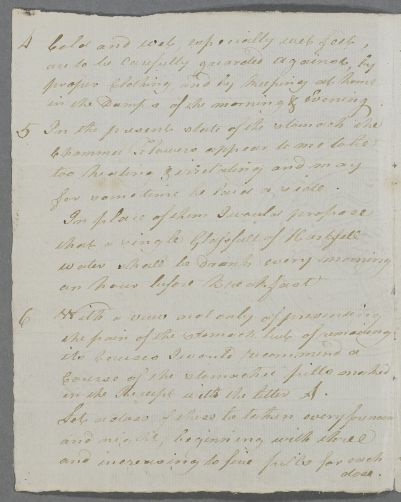 4 Cold and wet, especially wet feet
are to be carefully guarded against, by
proper Clothing and by keeping at home
in the Damps of the morning & Evening
5 In the present state of the stomach the
Chammo. Flowers appear to me to be
too heating & irritating and may
for sometime be laid aside.
In place of them I would propose
that a single Glassfull of Hartfell
water shall be drank every morning
an hour before Breakfast
6 With a view not only of preventing
the pain of the stomach but of removing
its Causes I would recommend a
Course of the stomachic pills marked
in the Receipt with the letter A.
Let a dose of these be taken every
and night, beginning with three
and increasing to five pills for each
dose.